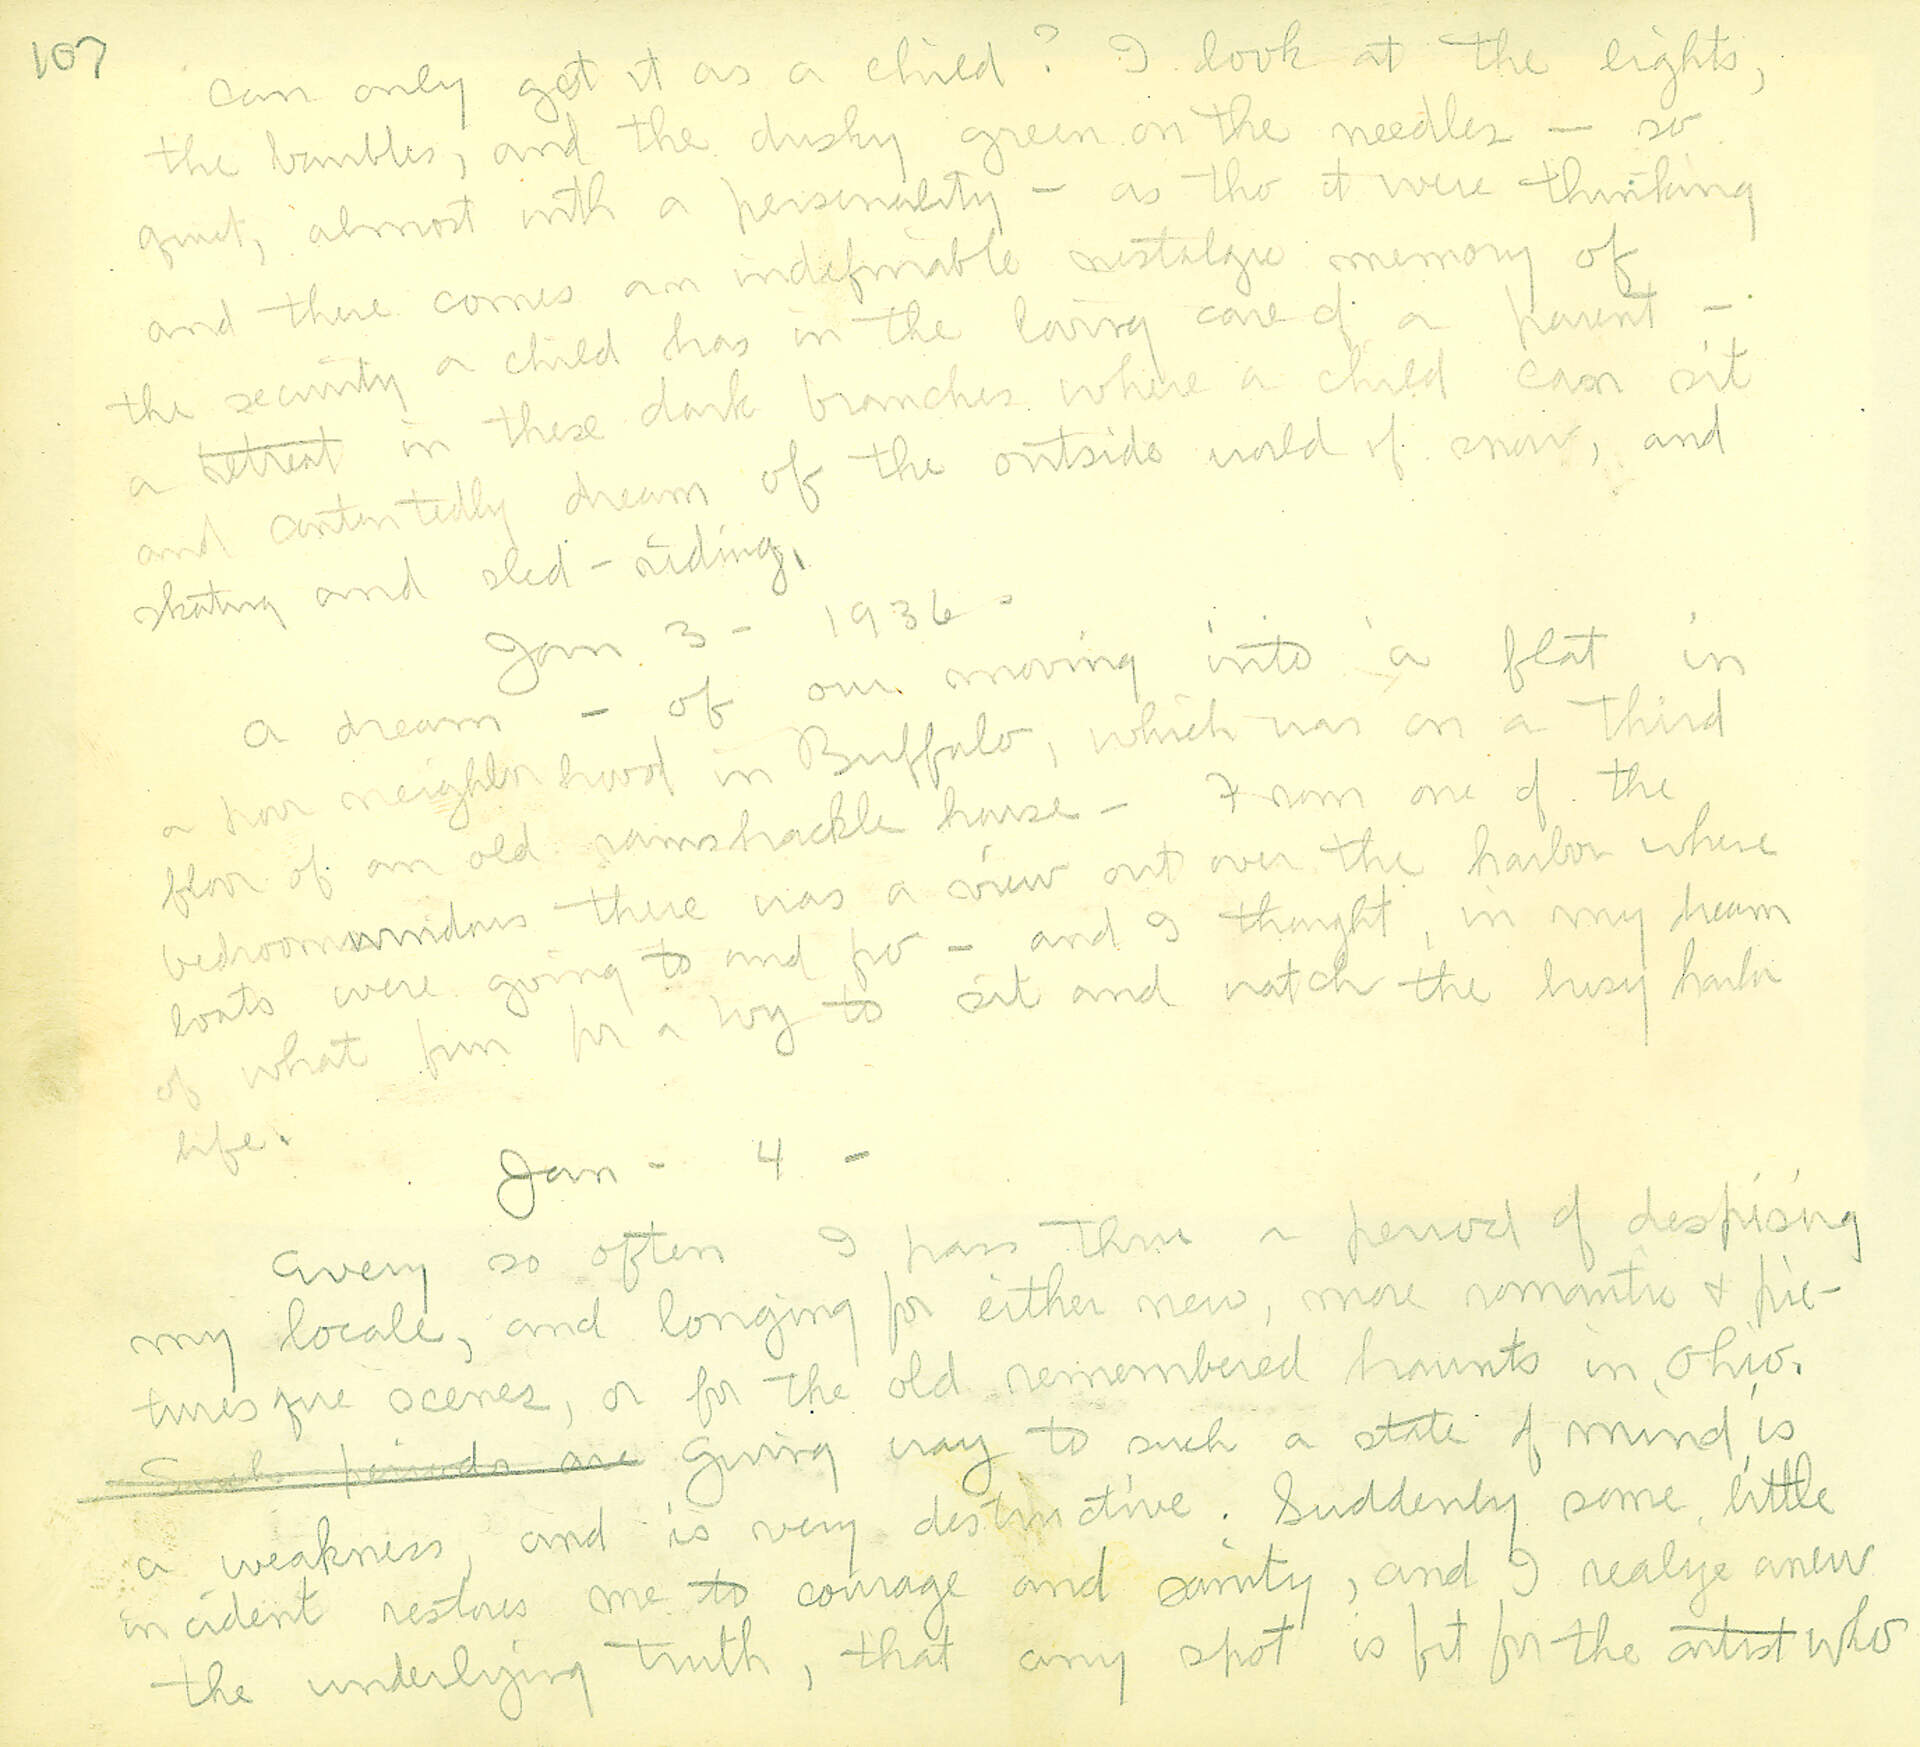 107
can only get it as a child? I look at the lights,
the baubles, and the dusky green on the needles – so
quiet, almost with a personality – as tho it were thinking
and there comes an indefinable nostalgic memory of
the security a child has in the loving care of a parent –
a retreat in these dark branches where a child can sit
and contentedly dream of the outside world of snow, and
skating and sled-riding.
Jan 3 – 1936 –
A dream – of our moving into a flat in
a poor neighborhood in Buffalo, which was on a third
floor of an old ramshackle house – From one of the
bedroom windows there was a view out over the harbor where
boats were going to and fro – and I thought, in my dream
of what fun for a boy to sit and watch the busy harbor
life.
Jan – 4 –
Every so often I pass thru a period of despising
my locale, and longing for either new, more romantic & pic-
turesque scenes, or for the old remembered haunts in Ohio.
Such periods are Giving way to such a state of mind is
a weakness, and is very destructive. Suddenly some little
incident restores me to courage and sanity, and I realize anew
the underlying truth, that any spot is fit for the artist who